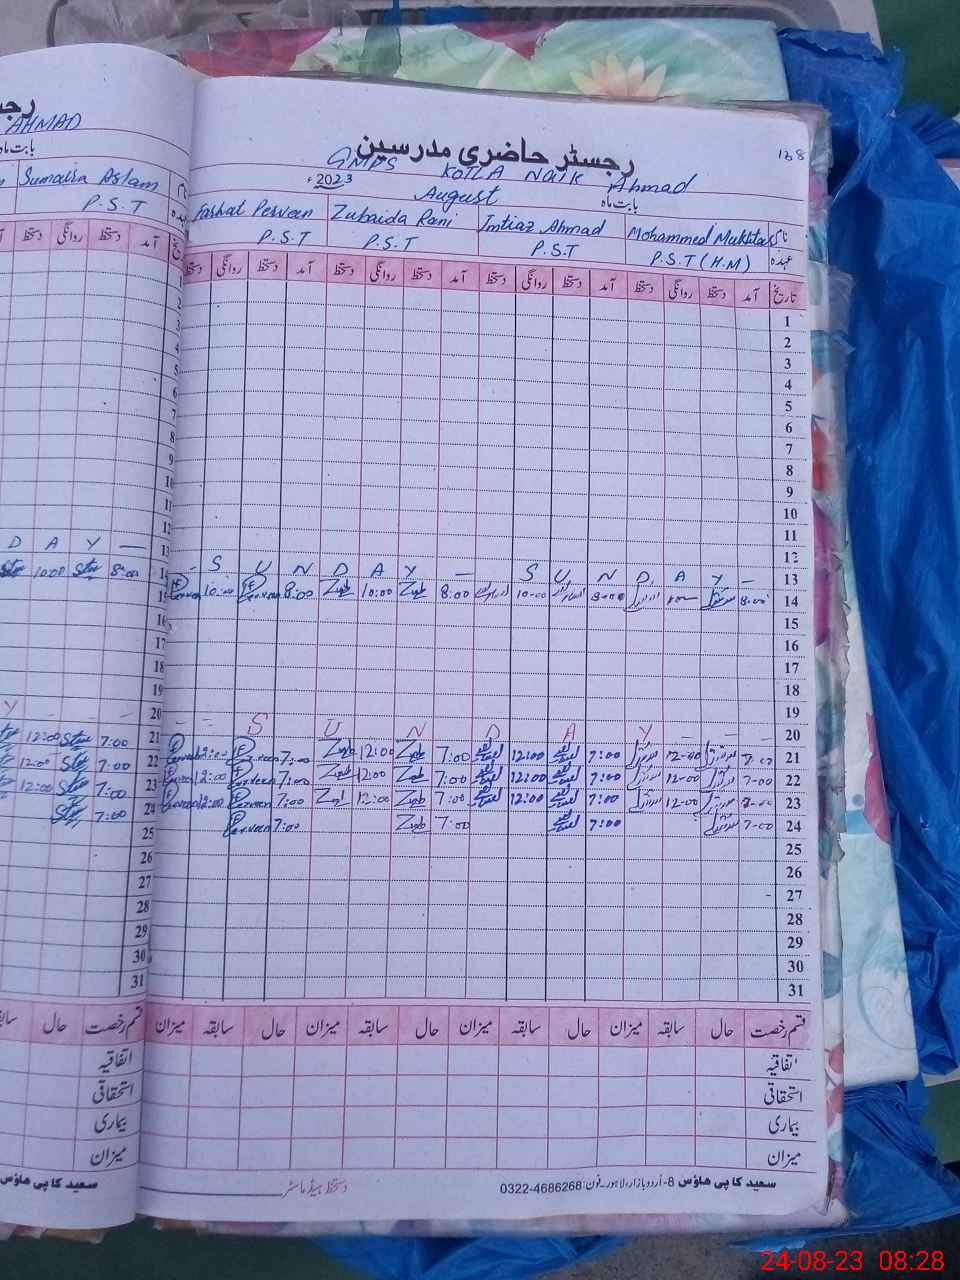 رجسٹر حاضری مدرسین
168
GMPS KOTLA NAIK Ahmad
AHMAD
2023ء August بابت ماہ
بابت ماہ
Sumaira Aslam
P.S.T
Farhat Perveen Zubaida Rani Imtiaz Ahmad Mohammed Mukhtar نام
P.S.T P.S.T P.S.T P.S.T (H.M) عہدہ
روانگی دستخط آمد تاریخ
دستخط روانگی دستخط آمد دستخط روانگی دستخط آمد دستخط روانگی دستخط آمد دستخط روانگی دستخط آمد تاریخ
1
2
3
4
5
6
7
8
9
10
11
12
D A Y —
- S U N D A Y — S U N D A Y - 13
10:00 8:00
Perveen 10:00 Perveen 8:00 Zub 10:00 Zub 8:00 10-00 8-00 8-00 14
15
16
17
18
19
Y - - -
- = S U N D A Y - - - 20
12:00 7:00
Perveen 12:00 Perveen 7:00 Zub 12:00 Zub 7:00 12:00 7:00 12-00 7-00 21
12:00 7:00
12:00 Perveen 7:00 Zub 12:00 Zub 7:00 12:00 7:00 12-00 7-00 22
12:00 7:00
Perveen 12:00 Perveen 7:00 Zub 12:00 Zub 7:00 12:00 7:00 12-00 7-00 23
7:00
Perveen 7:00 Zub 7:00 7:00 7-00 24
25
26
27
28
29
30
31
حال قسم رخصت
میزان سابقہ حال میزان سابقہ حال میزان سابقہ حال میزان سابقہ حال قسم رخصت
اتفاقیہ
استحقاقی
بیماری
میزان
اتفاقیہ
استحقاقی
بیماری
میزان
سعید کاپی ہاؤس
دستخط ہیڈ ماسٹر
سعید کاپی ہاؤس 8-اُردو بازار، لاہور۔ فون: 0322-4686268
24-08-23 08:28